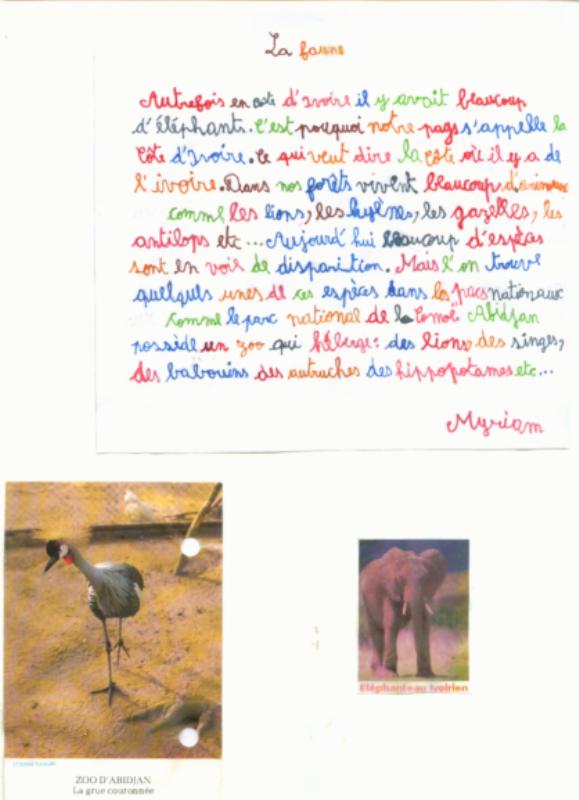 La faune
Autrefois en cote d'Ivoire il y avait beaucoup
d'éléphants. C'est pourquoi notre pays s'appelle la
Côte d'Ivoire. Ce qui veut dire la côte où il y a de
l'ivoire. Dans nos forêts vivent beaucoup d'animaux
comme les lions, les hyènes, les gazelles, les
antilops etc... Aujourd'hui beaucoup d'espèces
sont en voie de disparition. Mais l'on trouve
quelques unes de ces espèces dans les parcs nationaux
comme le parc national de la Comoë Abidjan
possède un zoo qui héberge: des lions, des singes,
des babouins des autruches des hippopotames etc...
Myriam
Eléphanteau Ivoirien
ZOO D'ABIDJAN
La grue couronnée